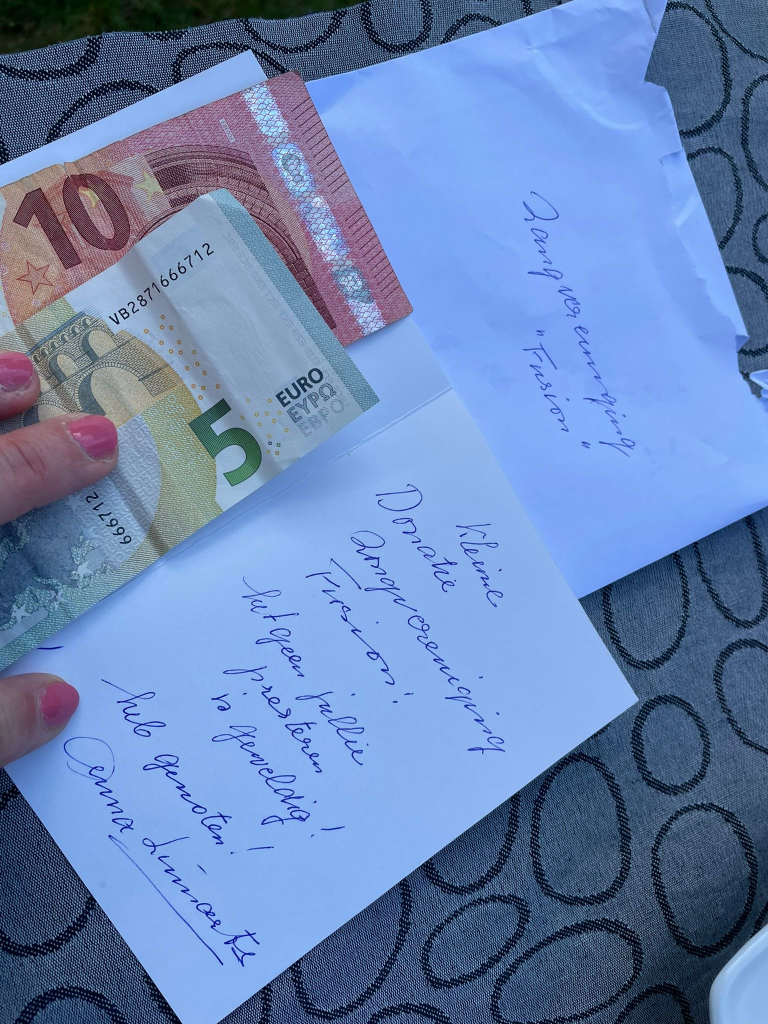 10
VB2871666712
EURO
ΕΥΡΩ
ЕВРО
5
666712
Zangvereniging
"Fusion"
Kleine
Donatie
Zangvereniging
Fusion!
hetgeen jullie
presteren
is geweldig!
heb genoten!
Anna